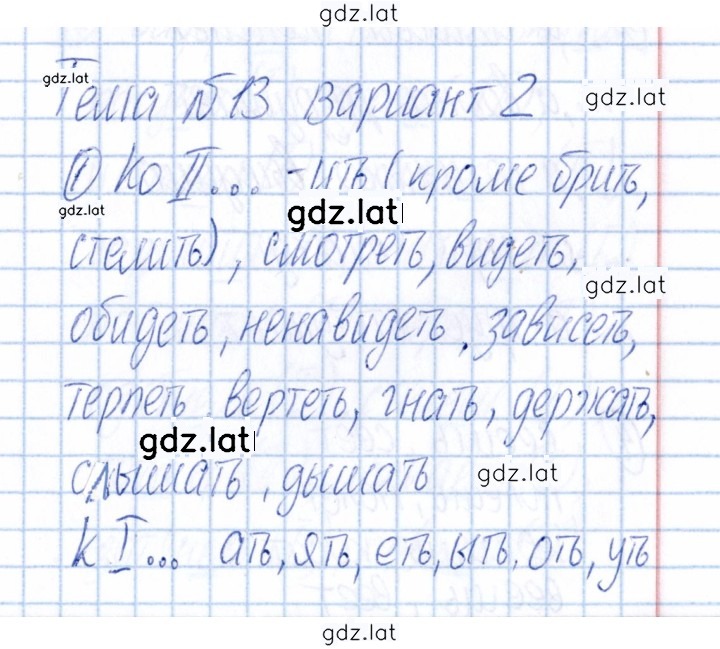 gdz.lat
gdz.lat
Тема №13 вариант 2
gdz.lat
① Ко II... -ить (кроме брить,
gdz.lat
gdz.lat
стелить), смотреть, видеть,
gdz.lat
обидеть, ненавидеть, зависеть,
терпеть вертеть, гнать, держать,
gdz.lat
gdz.lat
слышать, дышать
К I... ать, ять, еть, ыть, оть, уть
gdz.lat